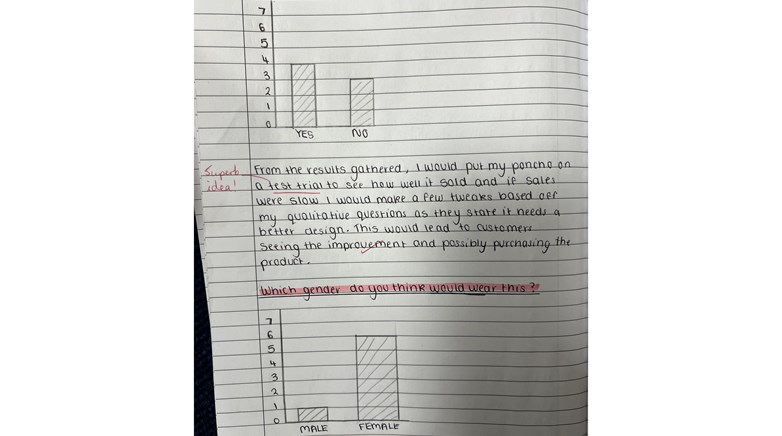 7
6
5
4
3
2
1
0
YES NO
Superb
idea!
From the results gathered, I would put my poncho on
a test trial to see how well it sold and if sales
were slow I would make a few tweaks based off
my qualitative questions as they state it needs a
better design. This would lead to customers
seeing the improvement and possibly purchasing the
product.
Which gender do you think would wear this?
7
6
5
4
3
2
1
0
MALE FEMALE